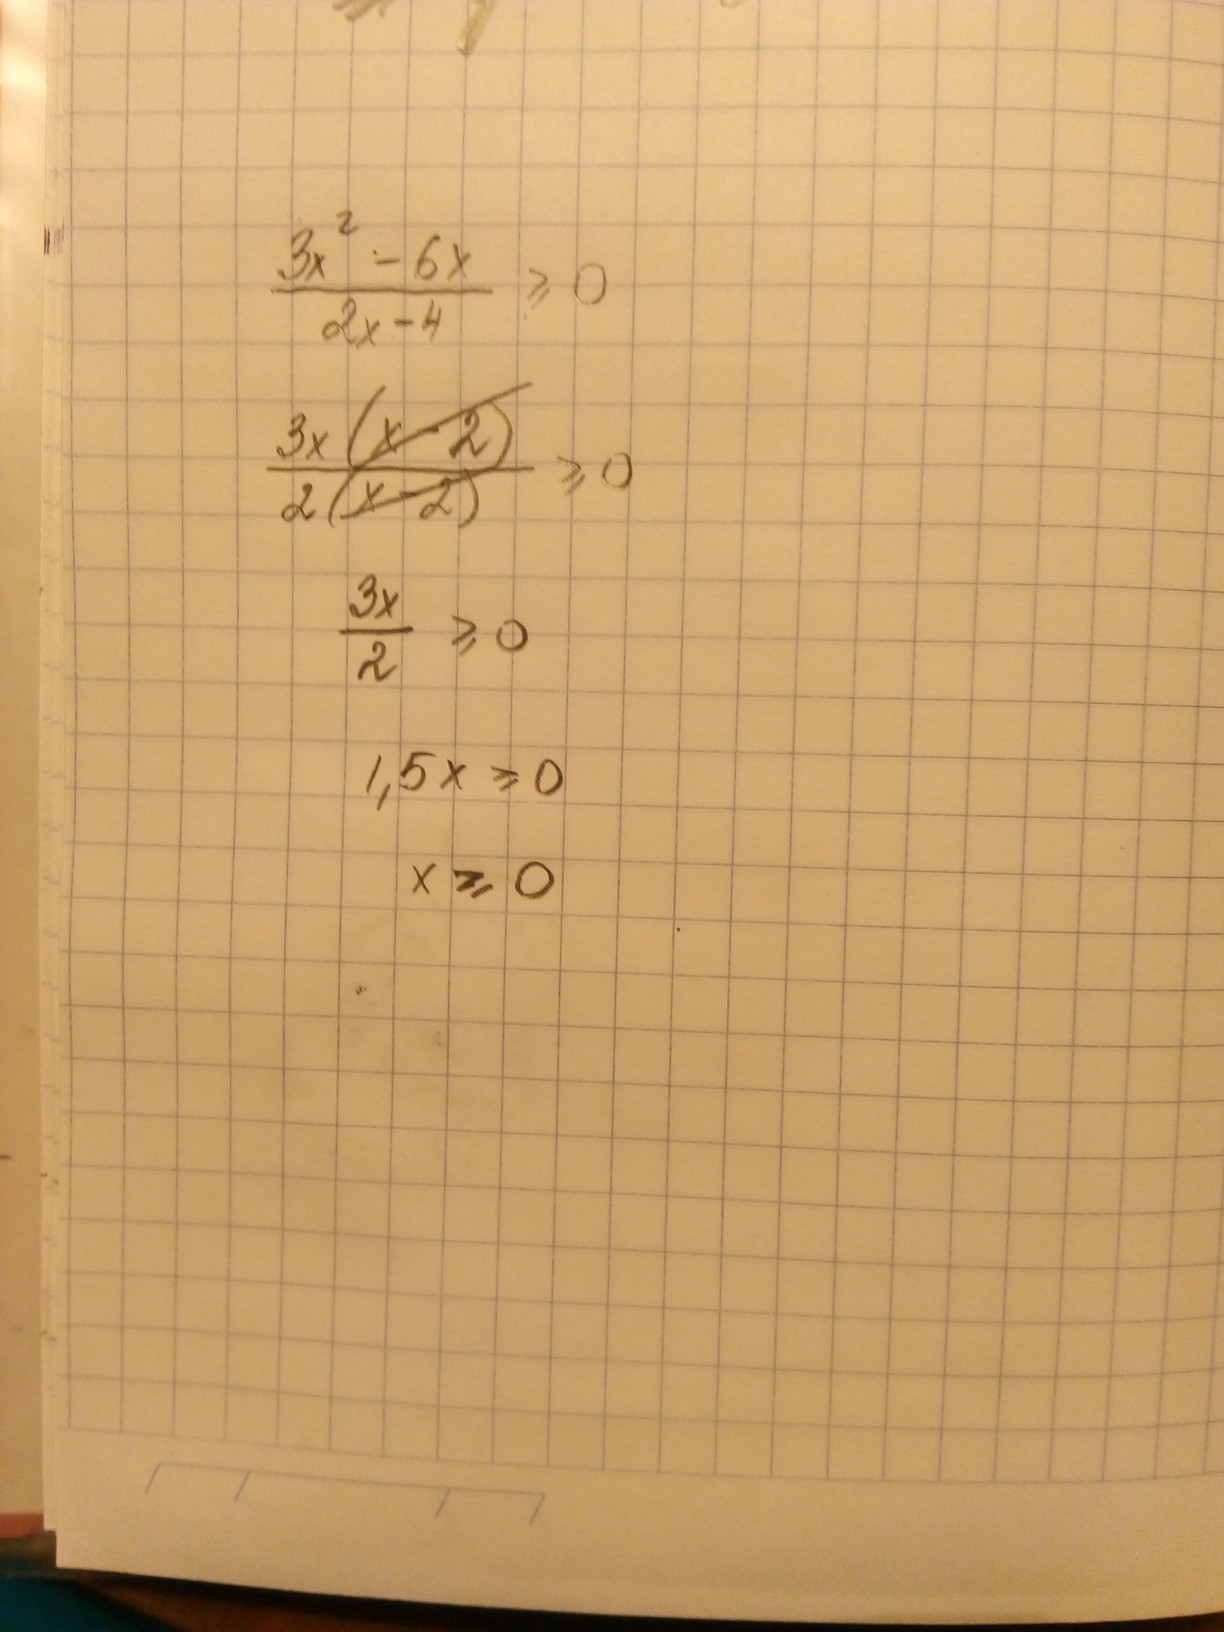 3x² - 6x / 2x - 4 ⩾ 0
3x(x - 2) / 2(x - 2) ⩾ 0
3x / 2 ⩾ 0
1,5x ⩾ 0
x ⩾ 0